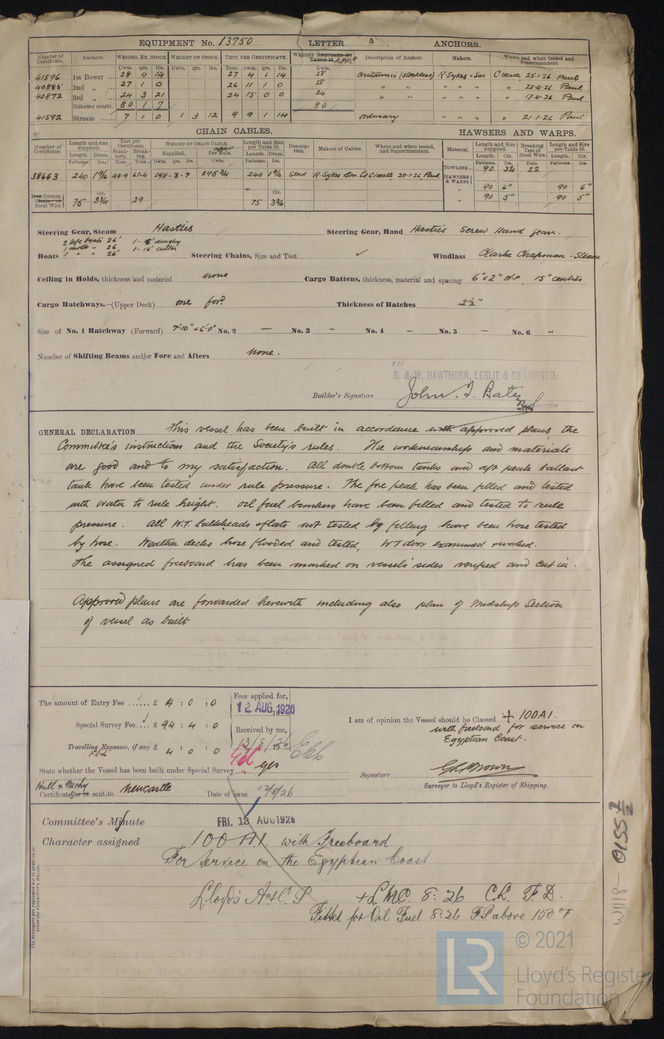 EQUIPMENT No. 13750 LETTER ANCHORS.
Number of Certificate. Anchors. WEIGHT, EX. STOCK. WEIGHT OF STOCK. TEST, PER CERTIFICATE. Description of Anchor. Makers. Where and when tested and Superintendent.
41596 1st Bower 28 0 14 27 4 1 14 R Sykes & Son 25·1·26 Paul
40885 2nd „ 27 1 0 26 11 1 0 " " " Paul
40872 3rd „ 24 3 21 24 15 0 0 24 " " " 17·4·26 Paul
Collective weight. 80 1 7 80
41592 Stream 7 1 0 1 3 12 9 9 1 14 ordinary " " " 21·1·26 Paul
CHAIN CABLES. HAWSERS AND WARPS.
Number of Certificate. Length and size supplied. Test per Certificate. WEIGHT OF CHAIN CABLE. Length and Size per Table 31. Description. Makers of Cables. Where and when tested, and Superintendent. Material. Length and Size supplied. Breaking Test of Steel Wire. Length and Size per Table 31.
38663 240 298-3-7 240 R Sykes & Son 20·1·26 Paul TOWLINE 90 22
HAWSERS & WARPS 90 6" 90 6"
Steel Wire 75 29 75 " 90 5" 90 5"
Steering Gear, Steam Hasties Steering Gear, Hand Hasties Screw Hand Gear.
Boats 2 life boats 26' 1-16' dinghy Steering Chains, Size and Test ✓ Windlass Clarke Chapman - Steam
Ceiling in Holds, thickness and material none Cargo Battens, thickness, material and spacing 6"x2" W.P. 15" centres
Cargo Hatchways.—(Upper Deck) one ford. Thickness of Hatches 2½"
Size of No. 1 Hatchway (Forward) 7'-10" x 6'-0" No. 2 — No. 3 — No. 4 — No. 5 — No. 6 —
Number of Shifting Beams and/or Fore and Afters none.
FOR
R. & W. HAWTHORN, LESLIE & CO LIMITED.
Builder's Signature John T. Batey
GENERAL DECLARATION This vessel has been built in accordance with approved plans the
Committee's instructions and the Society's rules. The workmanship and materials
are good and to my satisfaction. All double bottom tanks and aft peak ballast
tank have been tested under rule pressure. The fore peak has been filled and tested
with water to rule height. Oil fuel bunkers have been filled and tested to rule
pressure. All W.T. bulkheads & flats not tested by filling have been hose tested
by hose. Weather decks hose flooded and tested, WT door examined & worked.
The assigned freeboard has been marked on vessel's sides verified and cut in.
Approved plans are forwarded herewith including also plan of Midship Section
of vessel as built
The amount of Entry Fee £ 4 : 0 : 0 Fees applied for,
12 AUG. 1926
Special Survey Fee £ 94 : 4 : 0 Received by me,
Travelling Expenses, if any £ 4 : 0 : 0 13/8/26
I am of opinion the Vessel should be Classed +100A1.
with freeboard for service on
Egyptian Coast.
State whether the Vessel has been built under Special Survey Yes
Signature
Surveyor to Lloyd's Register of Shipping.
Certificate to be sent to Newcastle Date of issue
Committee's Minute FRI. 13 AUG 1926
Character assigned 100 A.1. with Freeboard
For Service on the Egyptian Coast
Lloyd's A & C P +LMC 8:26 C.L. F.D.
Fitted for Oil Fuel 8:26 F.P. above 150°F
W1118-0155 2/2
LR © 2021
Lloyd's Register
Foundation